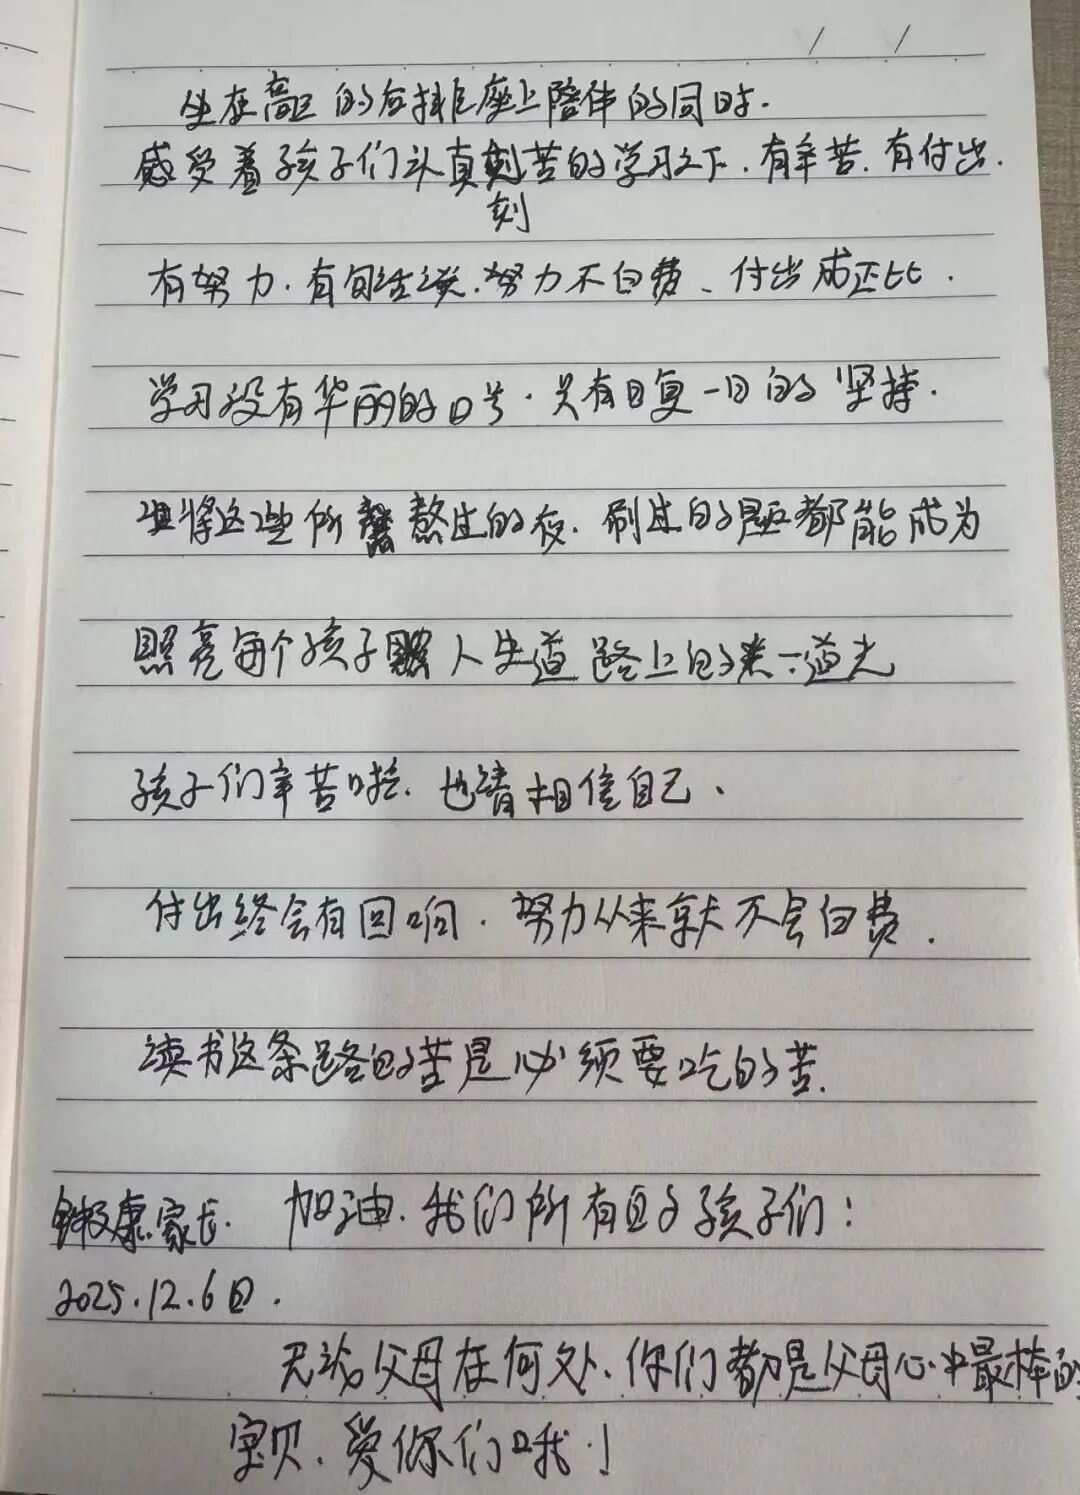 坐在高区的后排座上陪伴的同时.
感受着孩子们认真刻苦的学习之下.有辛苦.有付出.
刻
有努力.有句话说.努力不白费、付出成正比.
学习没有华丽的口号.只有日复一日的坚持.
将这些所熬过的夜.刷过的题都能成为
照亮每个孩子人生道路上的一道光
孩子们辛苦啦.也请相信自己、
付出终会有回响.努力从来就不会白费.
读书这条路的苦是必须要吃的苦.
康家长. 加油.我们所有的孩子们:
2025.12.6日.
无论父母在何处.你们都是父母心中最棒的
宝贝.爱你们哦.!